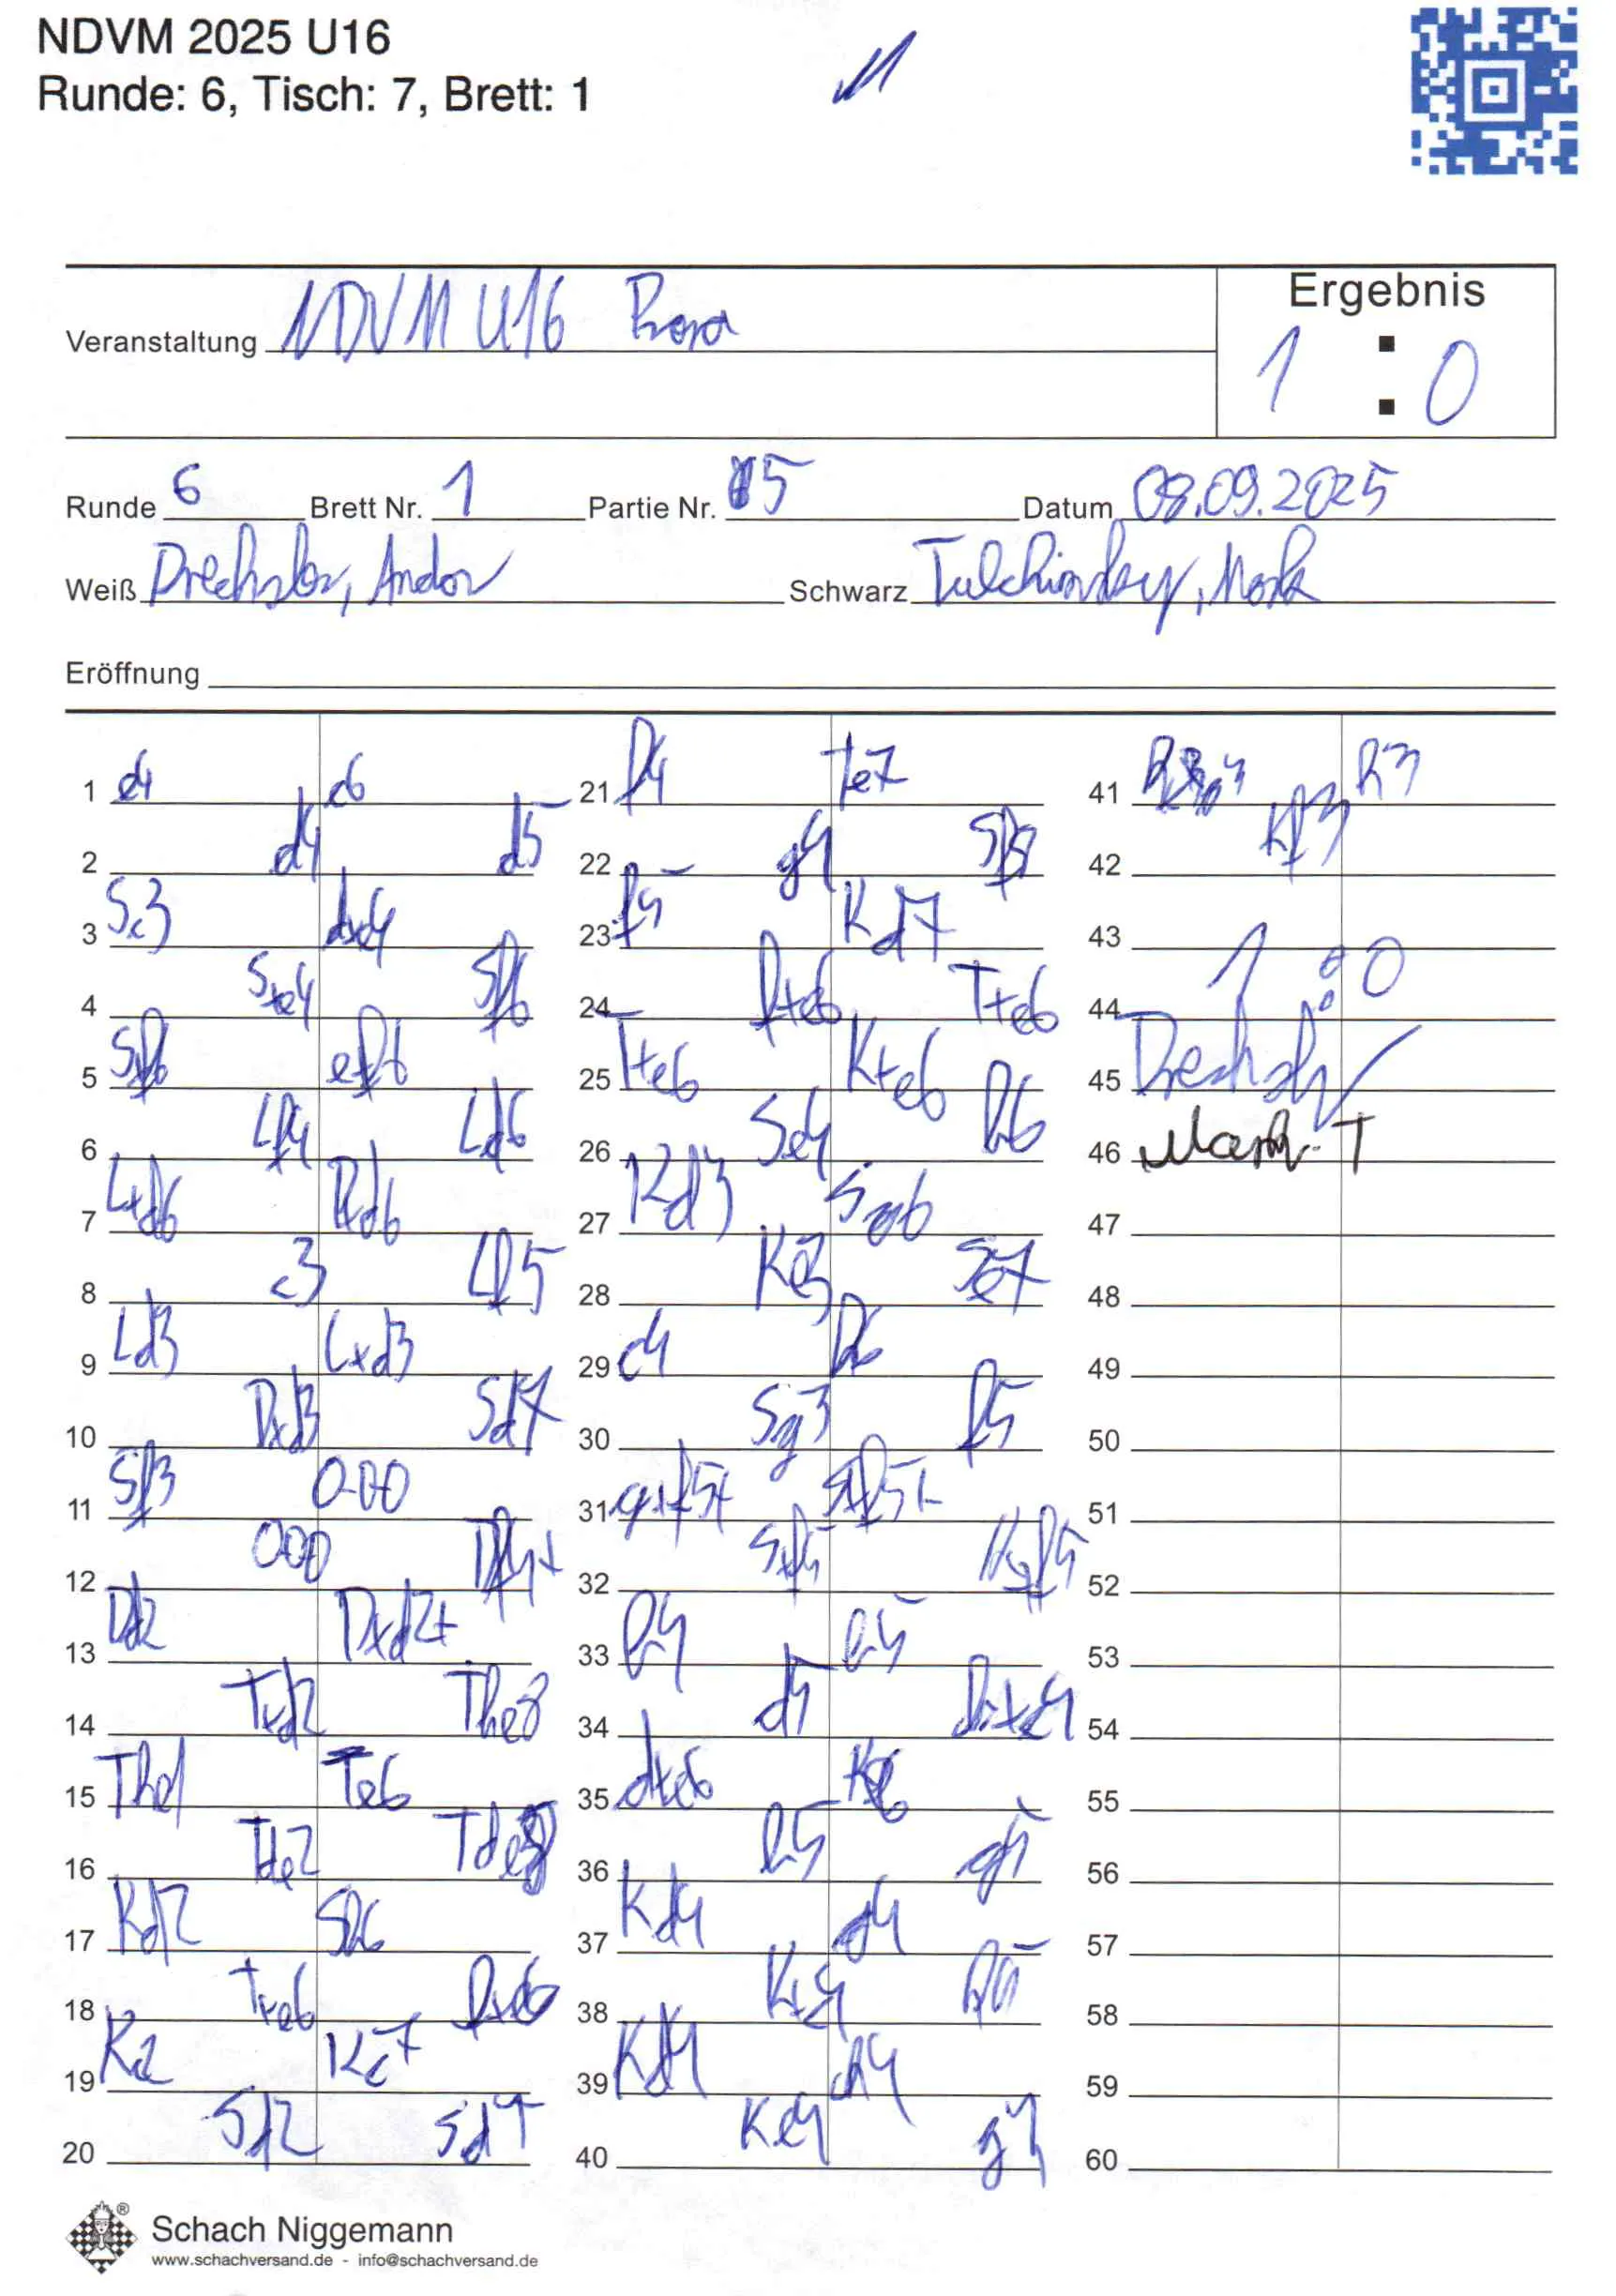 NDVM 2025 U16
Runde: 6, Tisch: 7, Brett: 1
Ergebnis
Veranstaltung NDVM U16
1 : 0
Runde 6 Brett Nr. 1 Partie Nr. 5 Datum 08.09.2025
Weiß Drechsler, Andor Schwarz Tulchinsky, Mark
Eröffnung
1 e4 c6
2 d4 d5
3 Sc3 dxe4
4 Sxe4 Sf6
5 Sxf6 exf6
6 Lf4 Ld6
7 Lxd6 Dxd6
8 c3 Lf5
9 Ld3 Lxd3
10 Dxd3 Sd7
11 Sf3 0-0-0
12 000 Df4+
13 Dd2 Dxd2+
14 Txd2 The8
15 The1 Te6
16 Tde2 Tde8
17 Kd2 Sb6
18 Txe6 fxe6
19 Kc2 Kc7
20 Sd2 Sd7
21 f4 Te7
22 g4 Sf8
23 f5 Kd7
24 fxe6 Txe6
25 Txe6 Kxe6
26 Se4 b6
27 Kd3 Sg6
28 Ke3 Se7
29 c4 h6
30 Sg3 f5
31 gxf5+ Sxf5+
32 Sxf5 Kxf5
33 b4 b5
34 d5 bxc4
35 dxc6 Ke6
36 b5 g5
37 Kd4 g4
38 Kxc4 h5
39 Kd4 h4
40 Ke4 g3
41 h3
42 Kf3
43 1 : 0
44
45 Drechsler
46 Mark T
47
48
49
50
51
52
53
54
55
56
57
58
59
60
Schach Niggemann
www.schachversand.de - info@schachversand.de